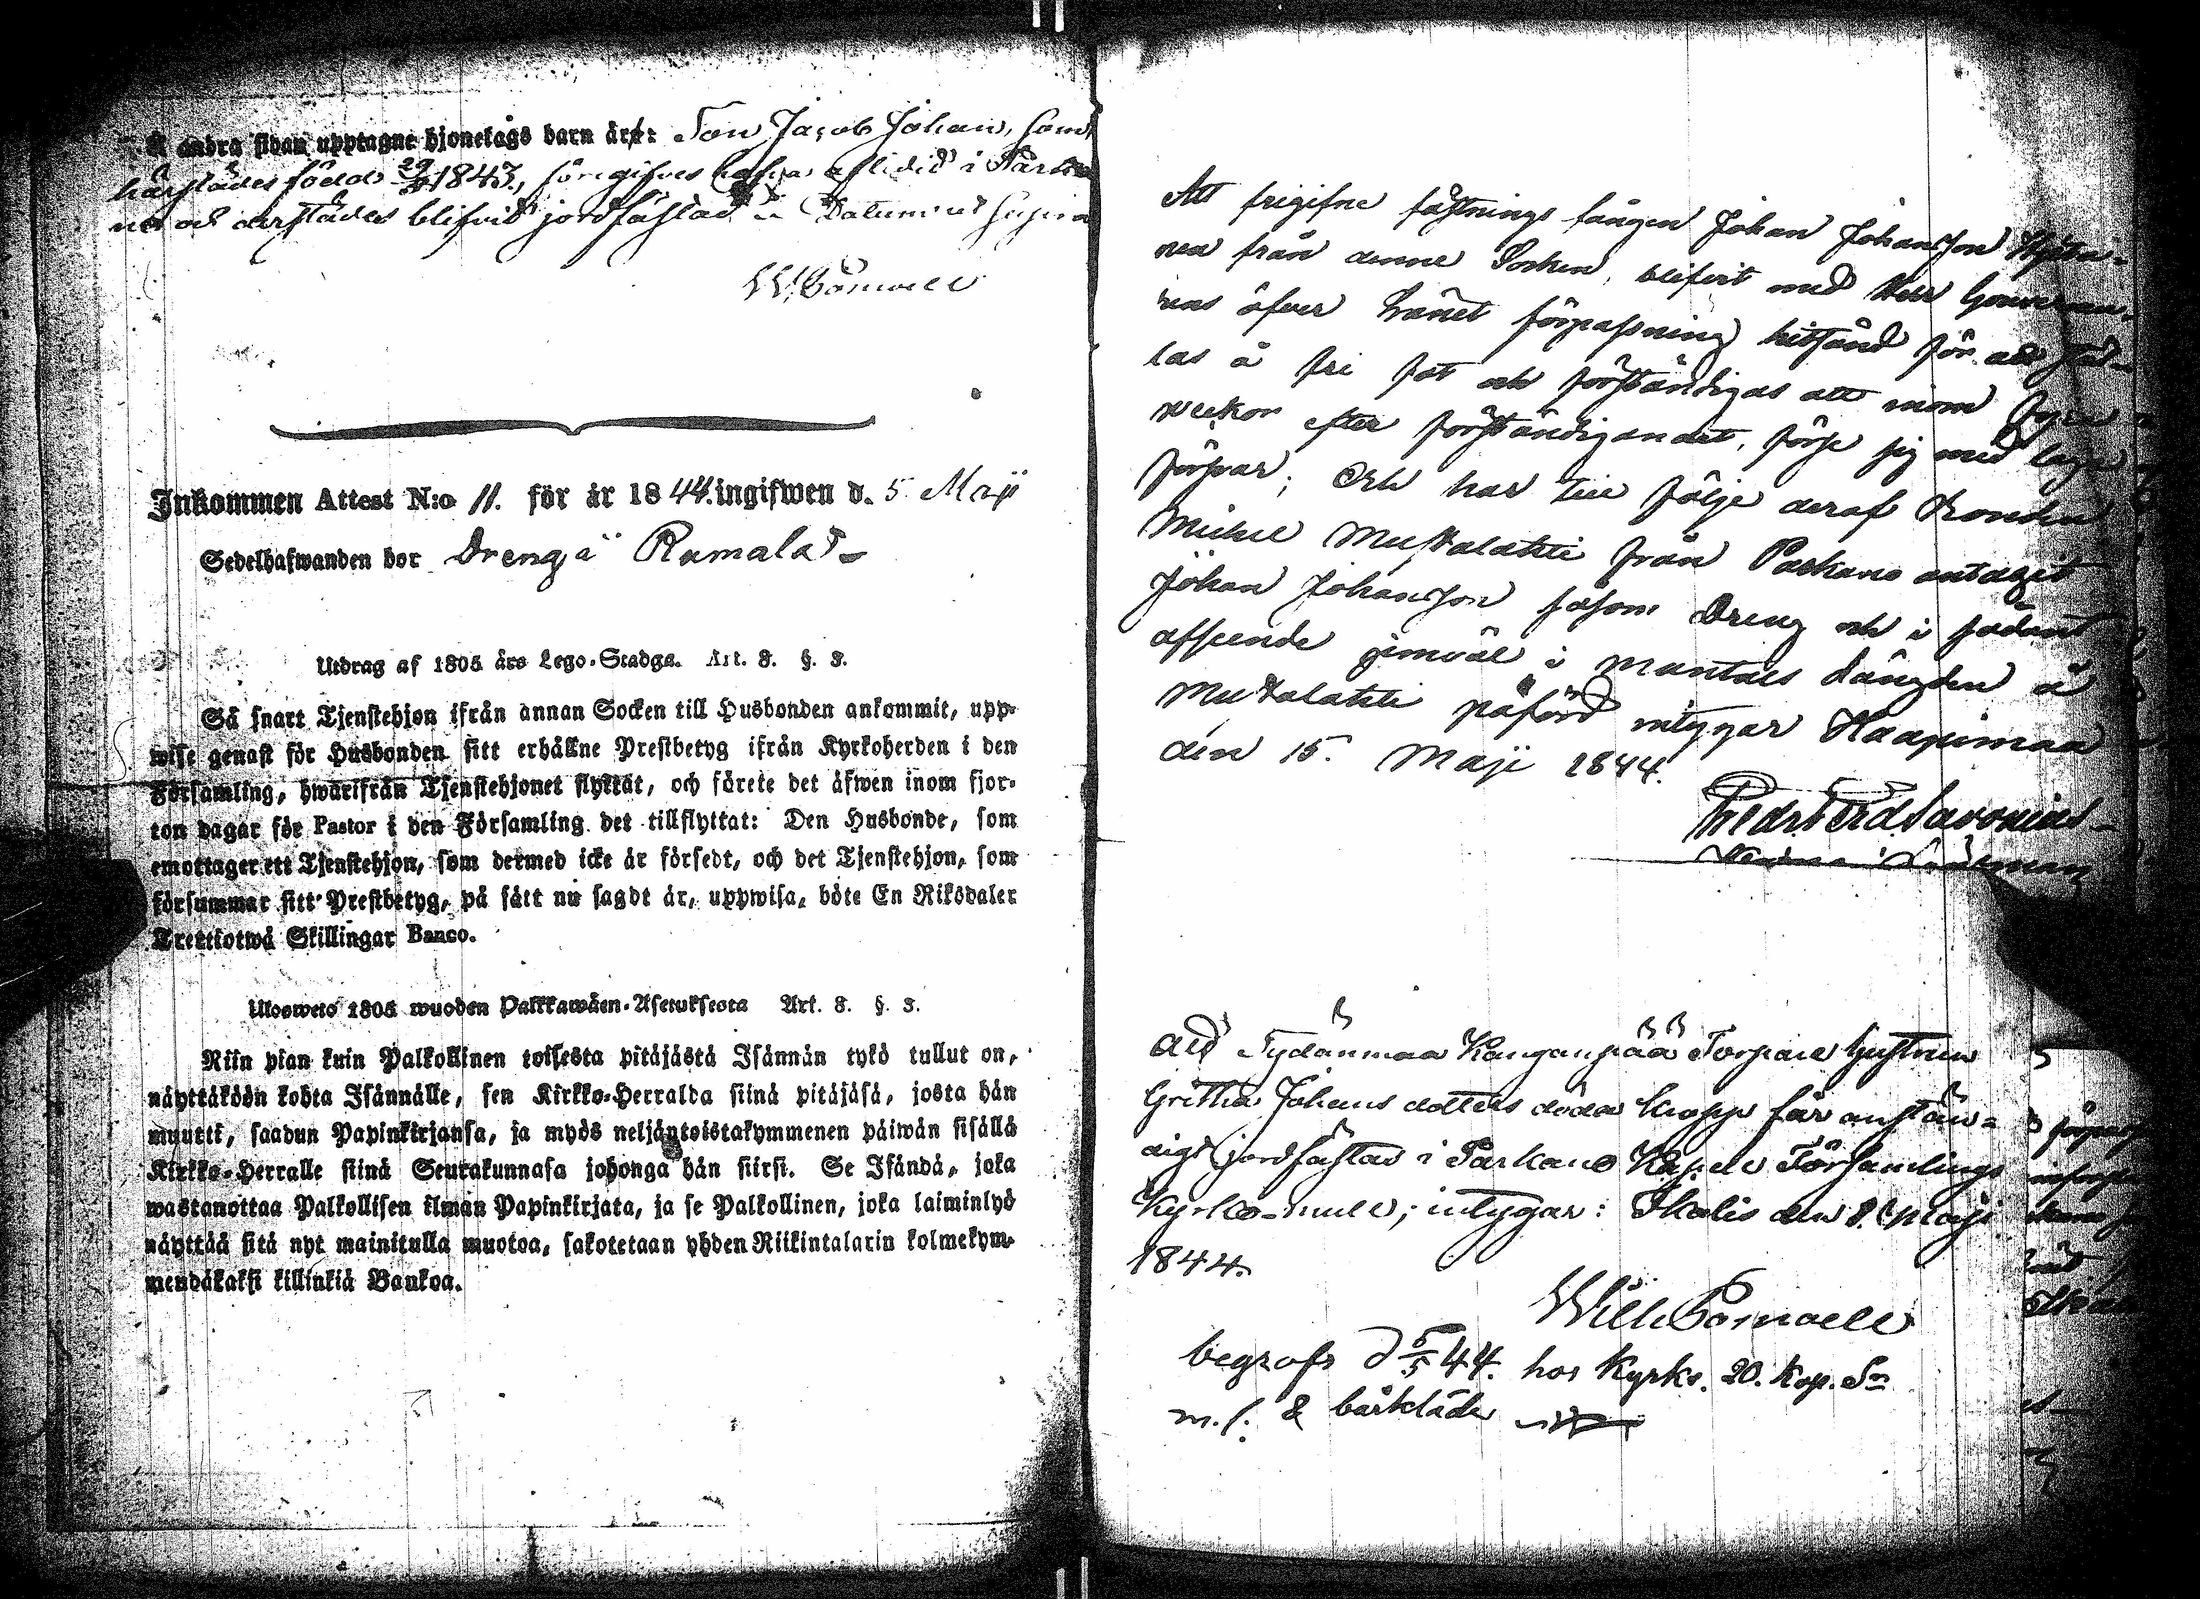 Å andra sidan upptagne hjonelags barn är: Son Jacob Johan, som
härstädes född 29/3 1843, föregifves hafva aflidit i Parka
no och derstädes blifvit jordfästad. Datum ut supra
Inkommen Attest N:o 11. för år 1844. ingifwen d. 5 Maji
Sedelhafwanden bor Dreng å Ramala
Utdrag af 1805 års Lego-Stadga. Art. 8. §. 3.
Så snart Tjenstehjon ifrån annan Socken till Husbonden ankommit, upp-
wise genast för Husbonden sitt erhållne Prestbetyg ifrån Kyrkoherden i den
Församling, hwarifrån Tjenstehjonet flyttat, och förete det äfwen inom fjor-
ton dagar för Pastor i den Församling det tillflyttat: Den Husbonde, som
emottager ett Tjenstehjon, som dermed icke är försedt, och det Tjenstehjon, som
försummar sitt Prestbetyg, på sätt nu sagdt är, uppwisa, böte En Riksdaler
Trettiotwå Skillingar Banco.
Ulosweto 1805 wuoden Palkkawäen-Asetuksesta Art. 8. §. 3.
Niin pian kuin Palkollinen toisesta pitäjästä Isännän tykö tullut on,
näyttäköön kohta Isännälle, sen Kirkko-Herralda siinä pitäjäsä, josta hän
muutti, saadun Papinkirjansa, ja myös neljäntoistakymmenen päiwän sisällä
Kirkko-Herralle siinä Seurakunnasa johonga hän siirsi. Se Isändä, joka
wastanottaa Palkollisen ilman Papinkirjata, ja se Palkollinen, joka laiminlyö
näyttää sitä nyt mainitulla muotoa, sakotetaan yhden Riikintalarin kolmekym-
mendäkaksi killinkiä Bankoa.
Att frigifne fästnings fången Johan Johansson
från denne Socken, blifvit med Herr Gouverneu-
rens öfver Länet förpassning hitsänd för att stäl-
las å fri fot och förständigas att inom fyra
veckor efter förständigandet, förse sig med laga
försvar; Och har till följe deraf Bonden
Michel Mustalahti från Parkano antagit
Johan Johansson såsom Dreng och i sådant
afseende jemväl i mantals Längden å
Mustalahti påförd intygar Haapimaa
den 15. Maji 1844.
Fredr Ferd Savonius
Länsman
Att Sydänmaa Kanganpää Torpare hustrun
Gretha Johans dotters döda kropp får anstän-
digt jordfästas i Parkano Kapell Församlings
Kyrko-mull; intygar: Ikalis den 8. Maji
1844.
begrafs d 5/5 44. hos Kyrks. 20. Kop. Sr
m. l. & bårkläde